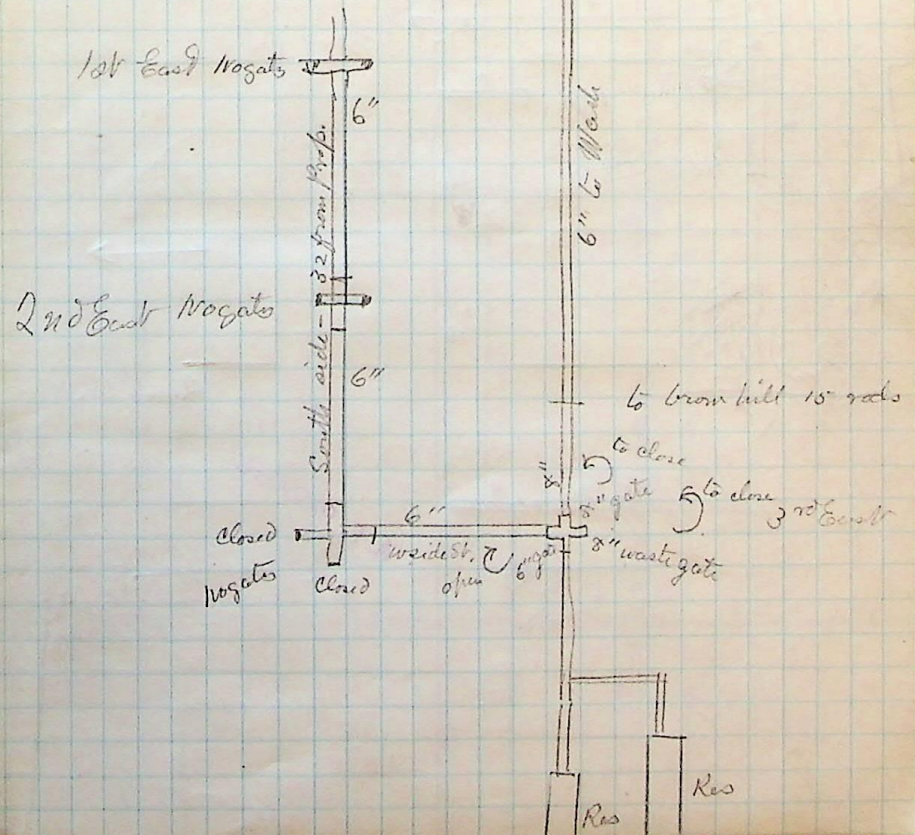 1st East No gats
6"
South side - 32 from Prop.
6" to Wash
2nd East No gats
6"
to brow hill 15 rods
8"
to close
8" gate
to close
3rd East
6"
Closed
No gats
Closed
W side St.
open
6" gate
8" waste gate
Res
Res